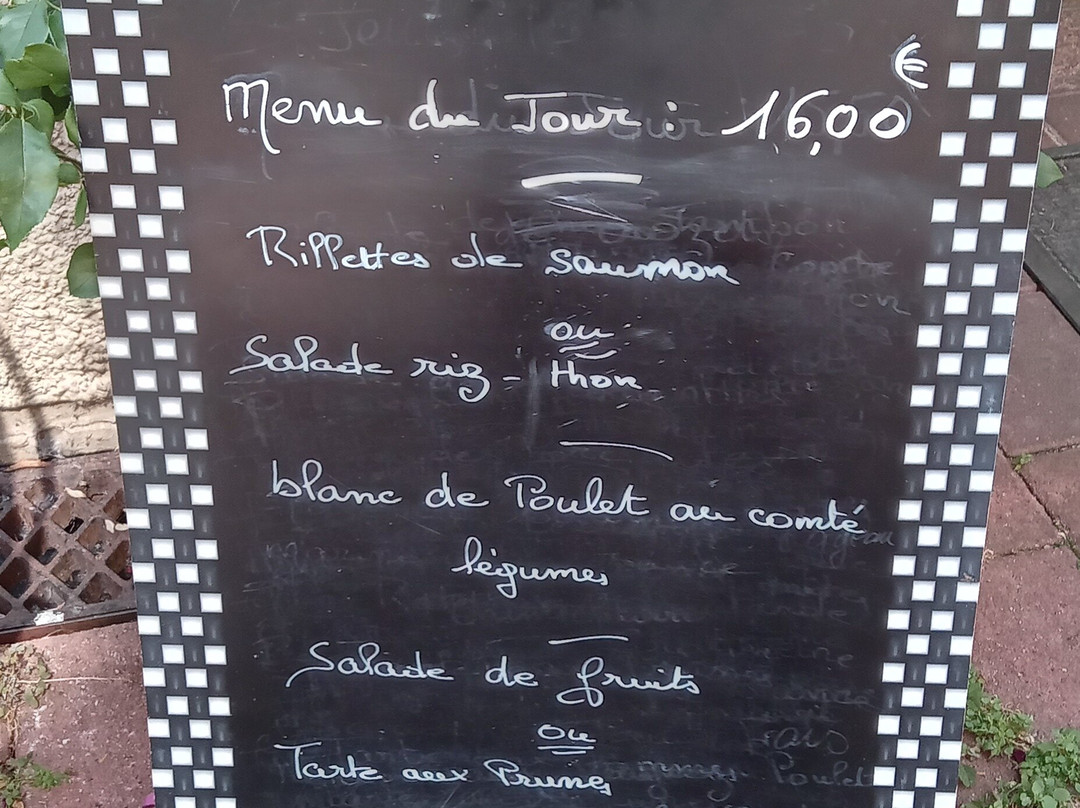 Menu du Jour : 16,00 €
Rillettes de saumon
ou
Salade riz - thon
blanc de Poulet au comté
légumes
Salade de fruits
ou
Tarte aux Prunes